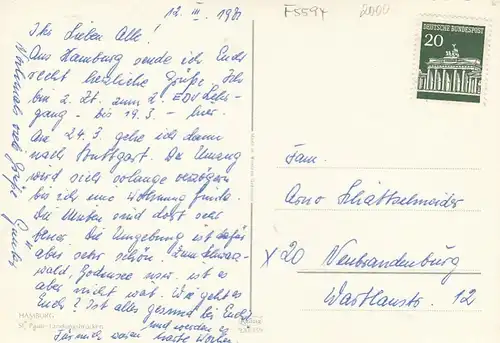 12. III. 1971
F5594
Ihr Lieben Alle!
Aus Hamburg sende ich Euch
recht herzliche Grüße. Ich
bin z. Zt. zum 2. EDV Lehr-
gang - bis 19.3. - hier.
Am 24.3. gehe ich dann
nach Stuttgart. Der Umzug
wird sich solange verzögern
bis ich eine Wohnung finde.
Die Mieten sind dort sehr
teuer. Die Umgebung ist dafür
aber sehr schön. Zum Schwarz-
wald, Bodensee usw. ist es
aber nicht weit. Wie geht es
Euch? Ist alles gesund bei Euch
Für mich waren und werden es harte Wochen.
Nochmals viele Grüße Günter
HAMBURG
St. Pauli-Landungsbrücken
DEUTSCHE BUNDESPOST
20
Fam.
Arno Schattschneider
x 20 Neubrandenburg
Warthestr. 12